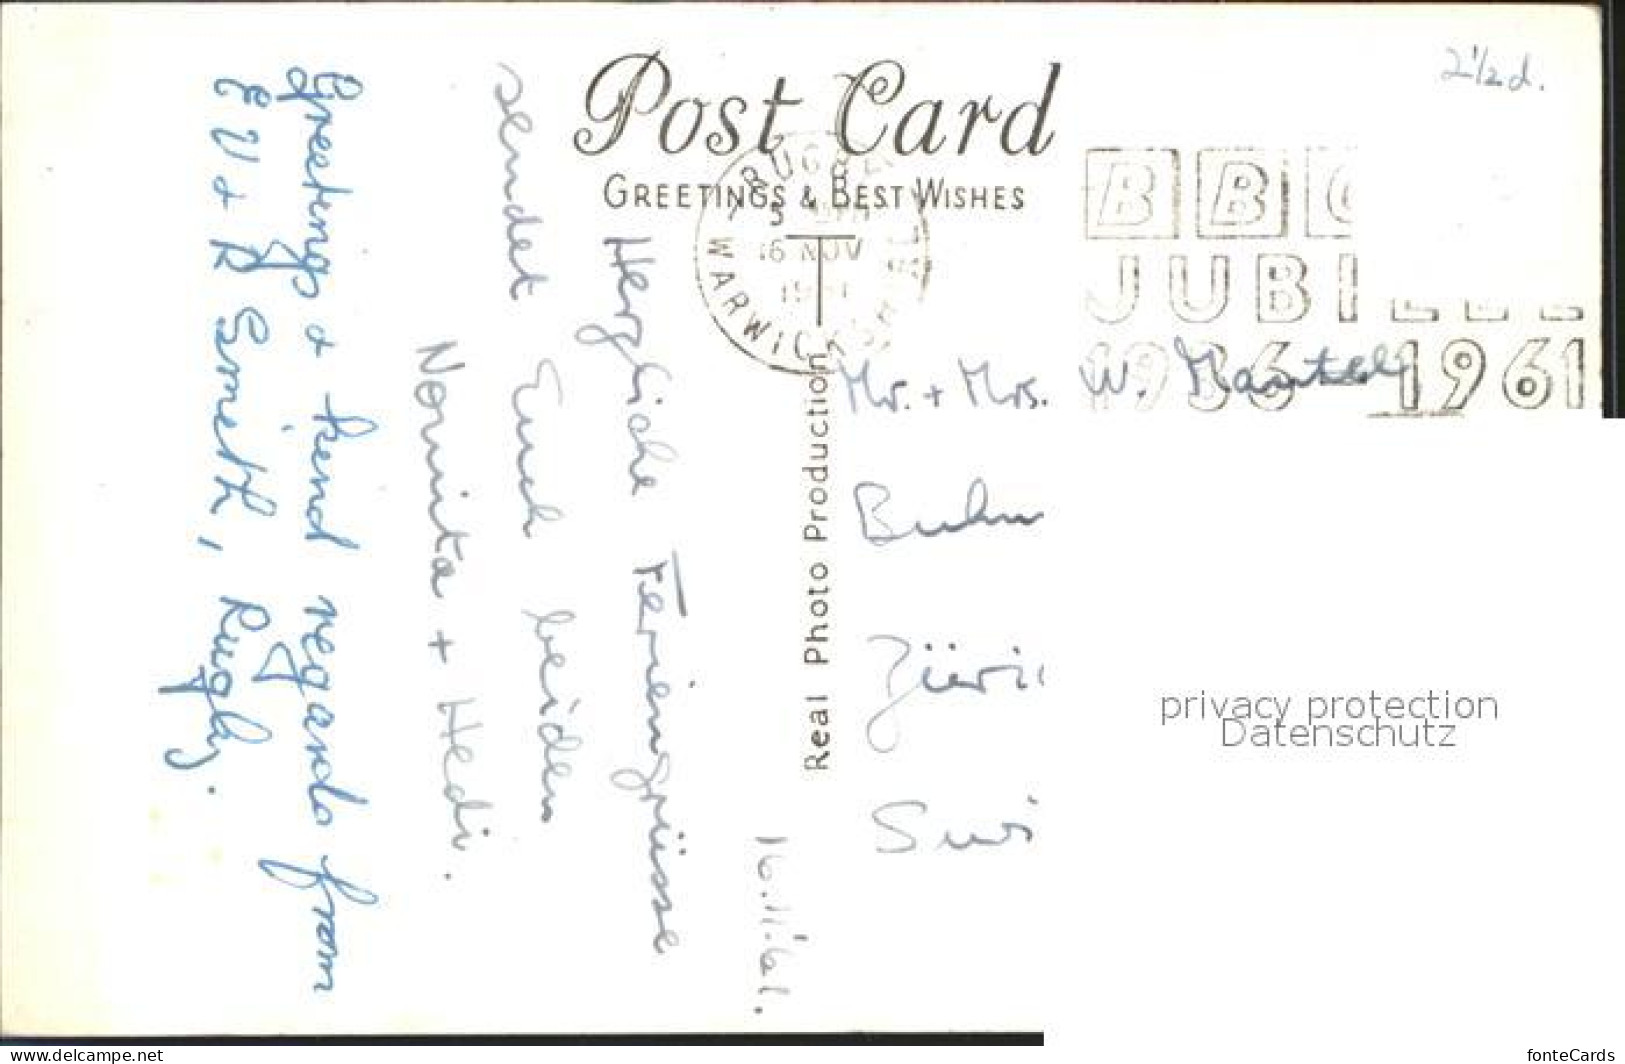 Post Card
GREETINGS & BEST WISHES
2½d.
RUGBY
16 NOV
WARWICKSHIRE
BBC
JUBILEE
1936 1961
16.11.61.
Herzliche Feriengrüsse
sendet Euch beiden
Nornita + Hedi.
Greetings & kind regards from
E V & R Smeeth, Rugby.
Real Photo Production
Mr. + Mrs. W. Mantel
privacy protection
Datenschutz
www.delcampe.net
fonteCards